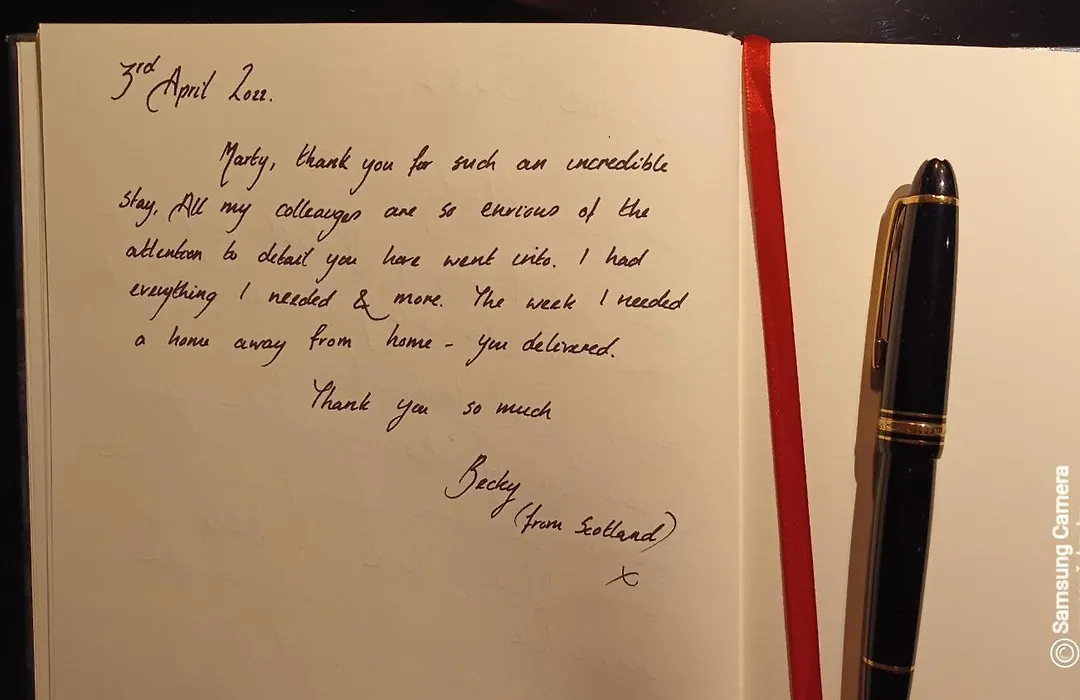 3rd April 2022.
Marty, thank you for such an incredible
stay. All my colleauges are so envious of the
attention to detail you have went into. I had
everything I needed & more. The week I needed
a home away from home - you delivered.
Thank you so much
Becky
(from Scotland)
x
© Samsung Camera